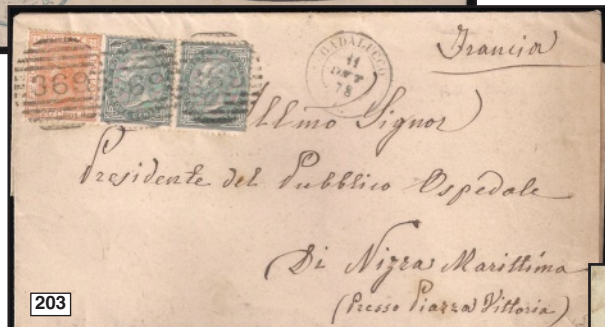 369 369 369
BADALUCCO
11
OTT
78
Francia
Illmo Signor
Presidente del Pubblico Ospedale
Di Nizza Marittima
(Presso Piazza Vittoria)
203